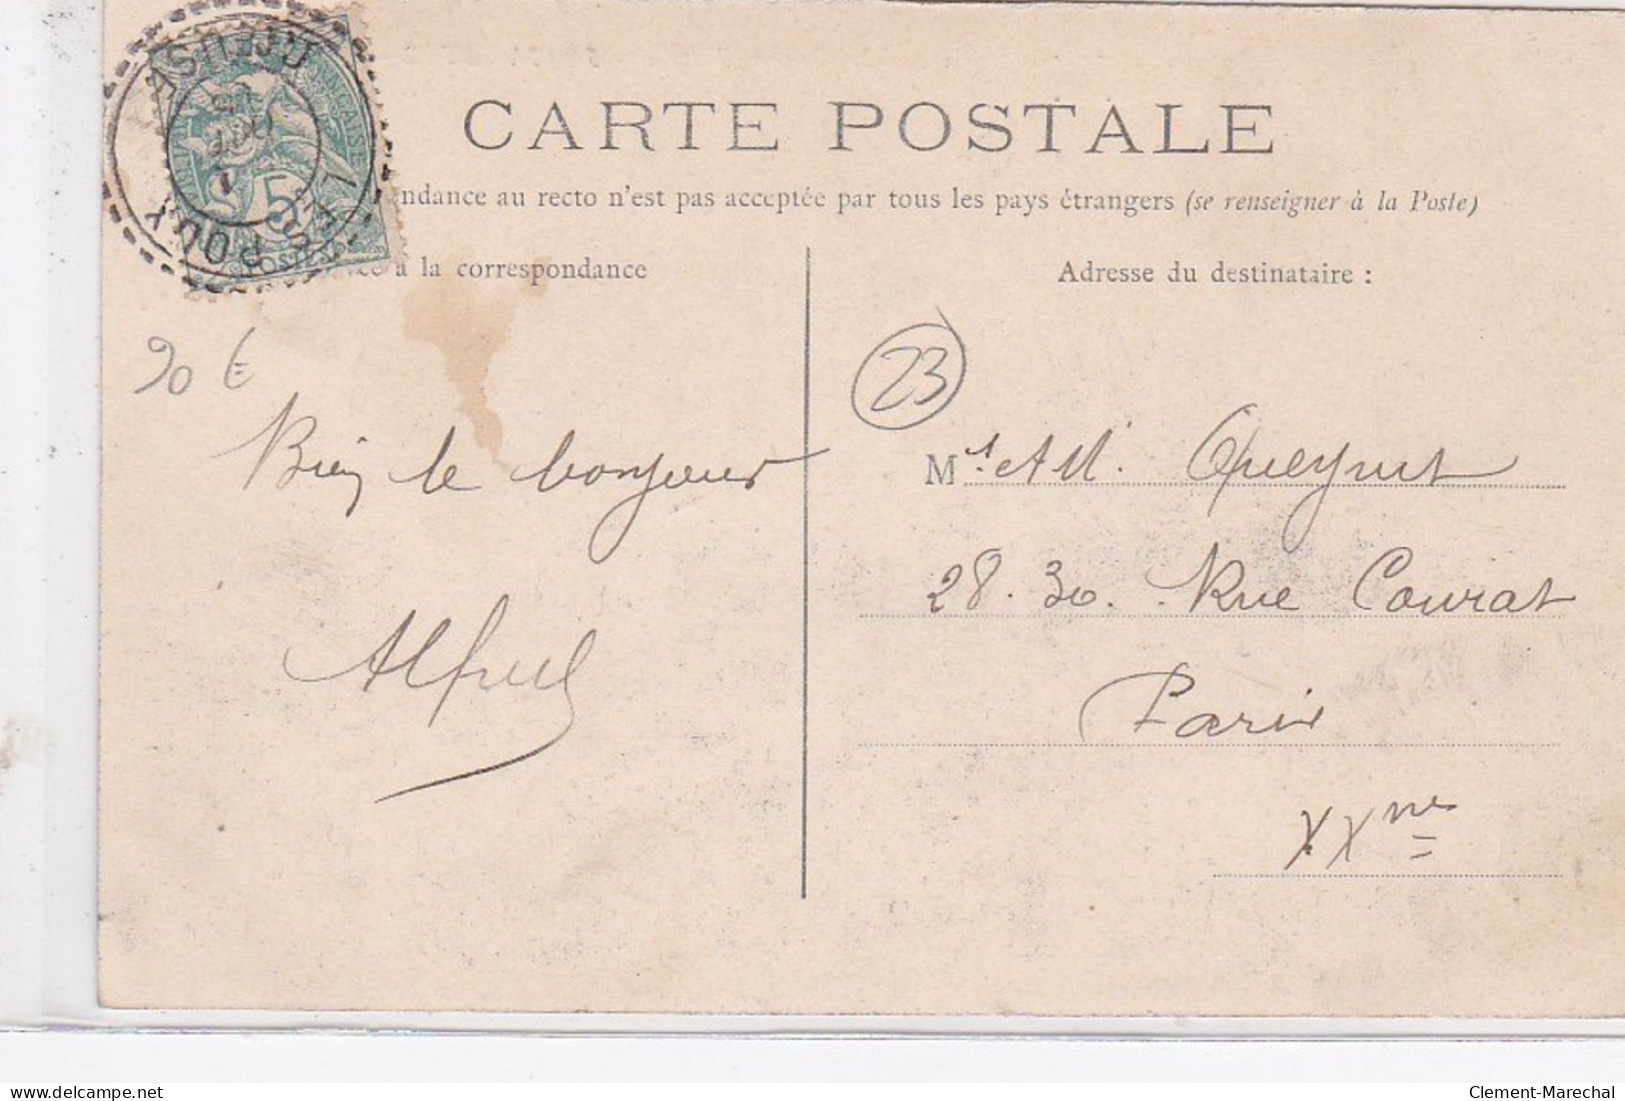 CREUSE
POUX
5
POSTES
CARTE POSTALE
ndance au recto n'est pas acceptée par tous les pays étrangers (se renseigner à la Poste)
à la correspondance
Adresse du destinataire :
90 €
23
Bien le bonjour
Alfred
Mrs et Al. Queyrut
28.30. Rue Courat
Paris
XXme
delcampe.net
Clement-Marechal